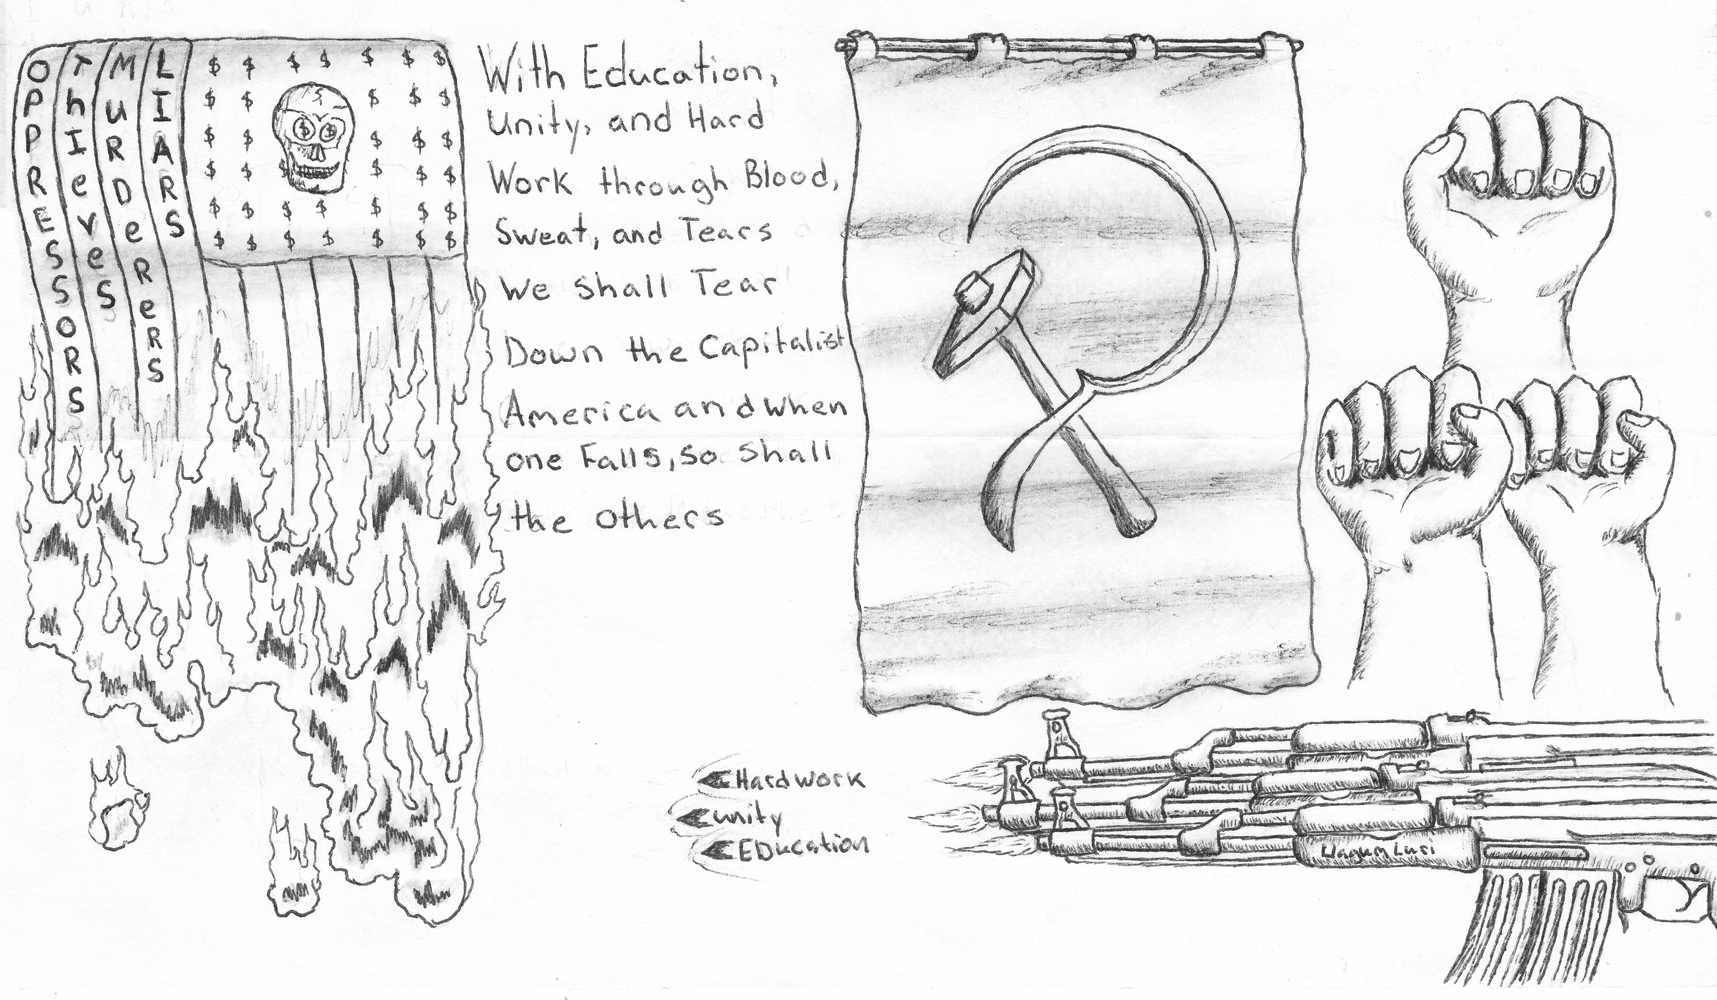 OPPRESSORS
ThIeveS
MuRDeReRS
LIARS
With Education,
Unity, and Hard
Work through Blood,
Sweat, and Tears
We Shall Tear
Down the Capitalist
America and when
one Falls, so Shall
the others
Hardwork
unity
EDucation